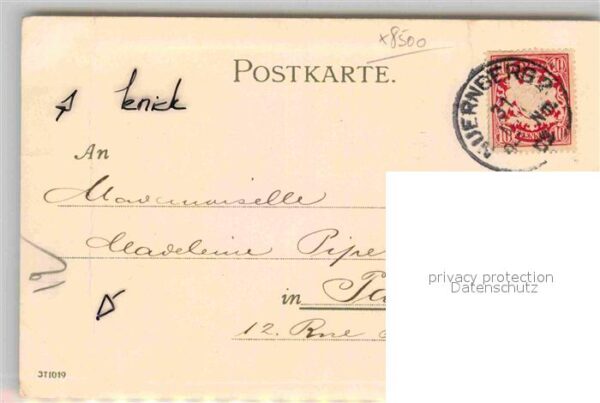 x8500
POSTKARTE.
NUERNBERG 2
10 10
10 PFENNIG 10
knick
An
Mademoiselle
Madeleine Pipe
in Pa
12. Rue
privacy protection
Datenschutz
12
371019